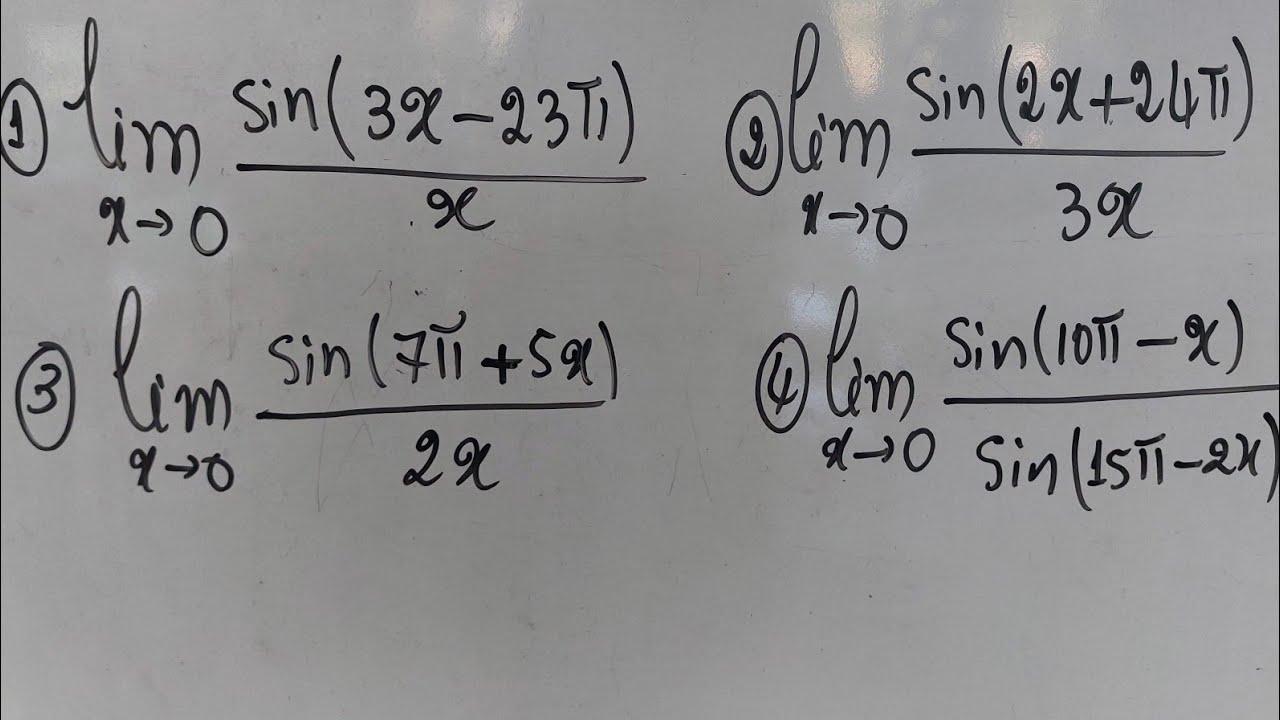 ① lim x→0 sin(3x-23π)/x
② lim x→0 sin(2x+24π)/3x
③ lim x→0 sin(7π+5x)/2x
④ lim x→0 sin(10π-x)/sin(15π-2x)